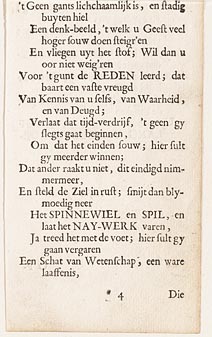 't Geen gants lichchaamlijk is, en stadig
buyten hiel
Een denk-beeld, 't welk u Geest veel
hoger souw doen steigr'en
En vliegen uyt het stof; Wil dan u
oor niet weig'ren
Voor 't gunt de REDEN leerd; dat
baart een vaste vreugd
Van Kennis van u selfs, van Waarheid,
en van Deugd;
Verlaat dat tijd-verdrijf, 't geen gy
slegts gaat beginnen,
Om dat het einden souw; hier sult
gy meerder winnen;
Dat ander raakt u niet, dit eindigd nim-
mermeer,
En steld de Ziel in rust; smijt dan bly-
moedig neer
Het SPINNEWIEL en SPIL, en
laat het NAY-WERK varen,
Ja treed het met de voet; hier sult gy
gaan vergaren
Een Schat van Wetenschap, een ware
laaffenis,
* 4 Die